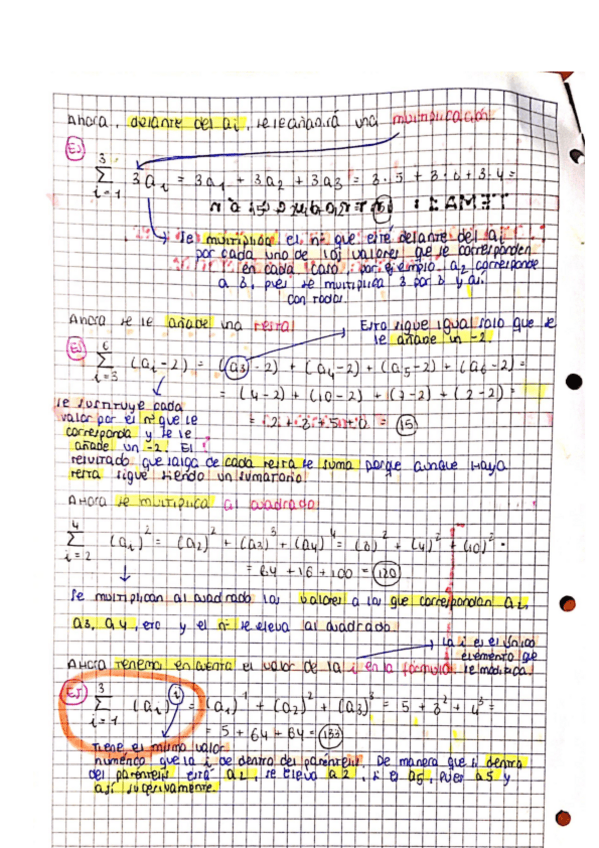 Ahora, delante del ai, se le añadirá una multiplicación
Ej
3
Σ 3ai = 3a1 + 3a2 + 3a3 = 3·5 + 3·8 + 3·4 =
i=1
Se multiplica el nº que esté delante del ai
por cada uno de los valores que se corresponden
en cada caso. por ejemplo. a2 corresponde
a 8, pues se multiplica 3 por 8 y así
con todos.
Ahora se le añade una resta
Esto sigue igual solo que se
le añade un -2.
Ej
6
Σ (ai-2) = (a3-2) + (a4-2) + (a5-2) + (a6-2) =
i=3
= (4-2) + (10-2) + (7-2) + (2-2) =
= 2+8+5+0 = 15
Se sustituye cada
valor por el nº que le
corresponda y se le
añade un -2. El
resultado que salga de cada resta se suma porque aunque haya
resta sigue siendo un sumatorio
Ahora se multiplica al cuadrado
4
Σ (ai)² = (a2)² + (a3)³ + (a4)⁴ = (8)² + (4)² + (10)² =
i=2
= 64 + 16 + 100 = 120
Se multiplican al cuadrado los valores a los que correspondan a2,
a3, a4, y el nº se eleva al cuadrado
La i es el único
elemento que
se modifica.
Ahora tenemos en cuenta el valor de la i en la fórmula.
Ej
3
Σ (ai)ⁱ = (a1)¹ + (a2)² + (a3)³ = 5 + 8² + 4³ =
i=1
= 5 + 64 + 64 = 133
Tiene el mismo valor
numérico que la i de dentro del paréntesis. De manera que si dentro
del paréntesis está a2, se eleva a 2, si es a5, pues a 5 y
así sucesivamente.